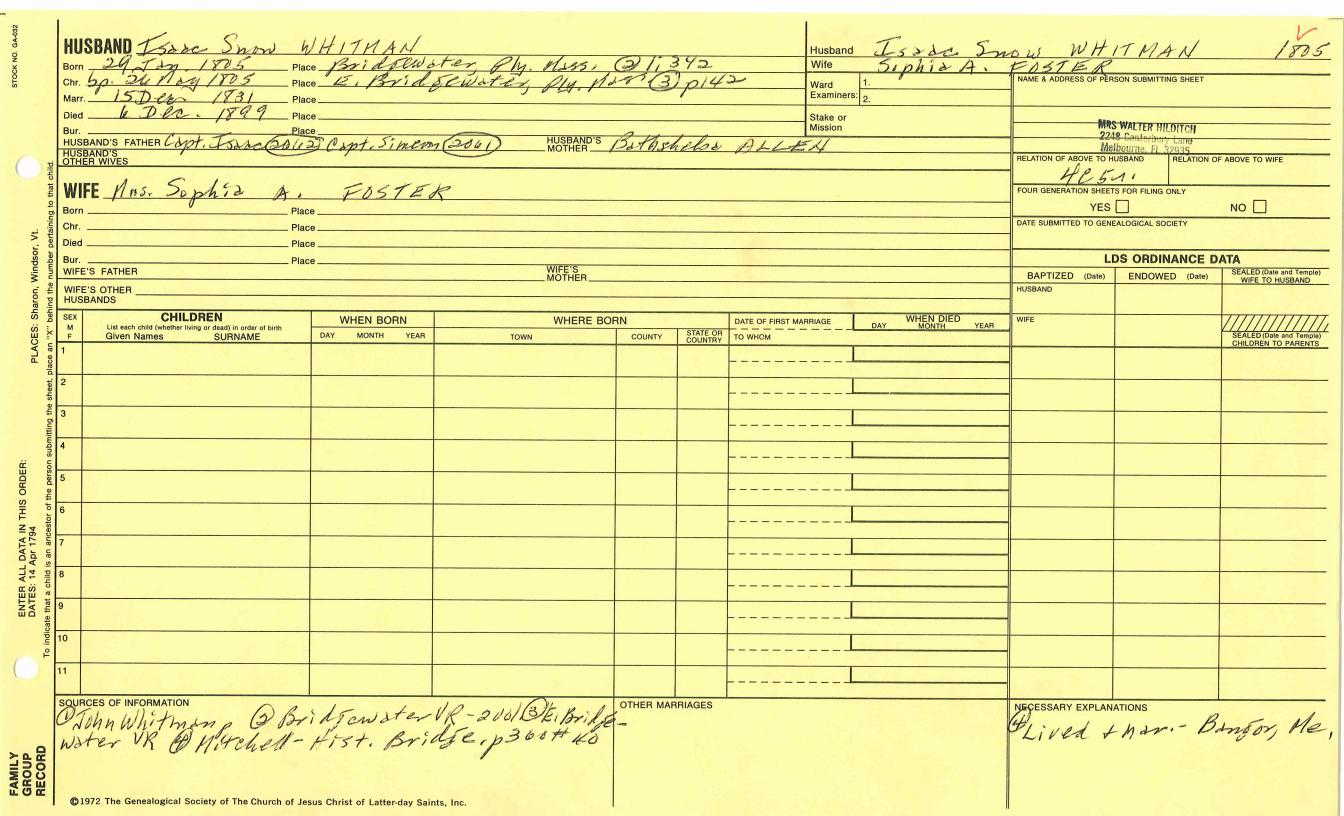 STOCK NO. GA-032
HUSBAND Isaac Snow WHITMAN
Born 29 Jan. 1805 Place Bridgewater, Ply. Mass. ② 1; 342
Chr. bp. 26 May 1805 Place E. Bridgewater, Ply. Mass ③ p142
Marr. 15 Dec 1831 Place
Died 6 Dec. 1899 Place
Bur. Place
HUSBAND'S FATHER Capt. Isaac Capt. Simeon HUSBAND'S MOTHER Bathsheba ALLEN
HUSBAND'S OTHER WIVES
WIFE Mrs. Sophia A. FOSTER
Born Place
Chr. Place
Died Place
Bur. Place
WIFE'S FATHER WIFE'S MOTHER
WIFE'S OTHER HUSBANDS
Husband Isaac Snow WHITMAN 1805
Wife Sophia A. FOSTER
Ward Examiners: 1.
2.
Stake or Mission
NAME & ADDRESS OF PERSON SUBMITTING SHEET
MRS WALTER HILDITCH
2248 Canterbury Lane
Melbourne, FL 32935
RELATION OF ABOVE TO HUSBAND RELATION OF ABOVE TO WIFE
FOUR GENERATION SHEETS FOR FILING ONLY
YES NO
DATE SUBMITTED TO GENEALOGICAL SOCIETY
LDS ORDINANCE DATA
BAPTIZED (Date) ENDOWED (Date) SEALED (Date and Temple) WIFE TO HUSBAND
HUSBAND
WIFE
SEALED (Date and Temple) CHILDREN TO PARENTS
SEX M F
CHILDREN
List each child (whether living or dead) in order of birth
Given Names SURNAME
WHEN BORN
DAY MONTH YEAR
WHERE BORN
TOWN COUNTY STATE OR COUNTRY
DATE OF FIRST MARRIAGE
TO WHOM
WHEN DIED
DAY MONTH YEAR
1
2
3
4
5
6
7
8
9
10
11
SOURCES OF INFORMATION
① John Whitman, ② Bridgewater VR-2vol ③ E. Bridge-
water VR ④ Mitchell-Hist. Bridge. p360 #40
OTHER MARRIAGES
NECESSARY EXPLANATIONS
④ Lived + mar.- Bangor, Me.
©1972 The Genealogical Society of The Church of Jesus Christ of Latter-day Saints, Inc.
FAMILY GROUP RECORD
ENTER ALL DATA IN THIS ORDER:
DATES: 14 Apr 1794
PLACES: Sharon, Windsor, Vt.
To indicate that a child is an ancestor of the person submitting the sheet, place an "X" behind the number pertaining to that child.